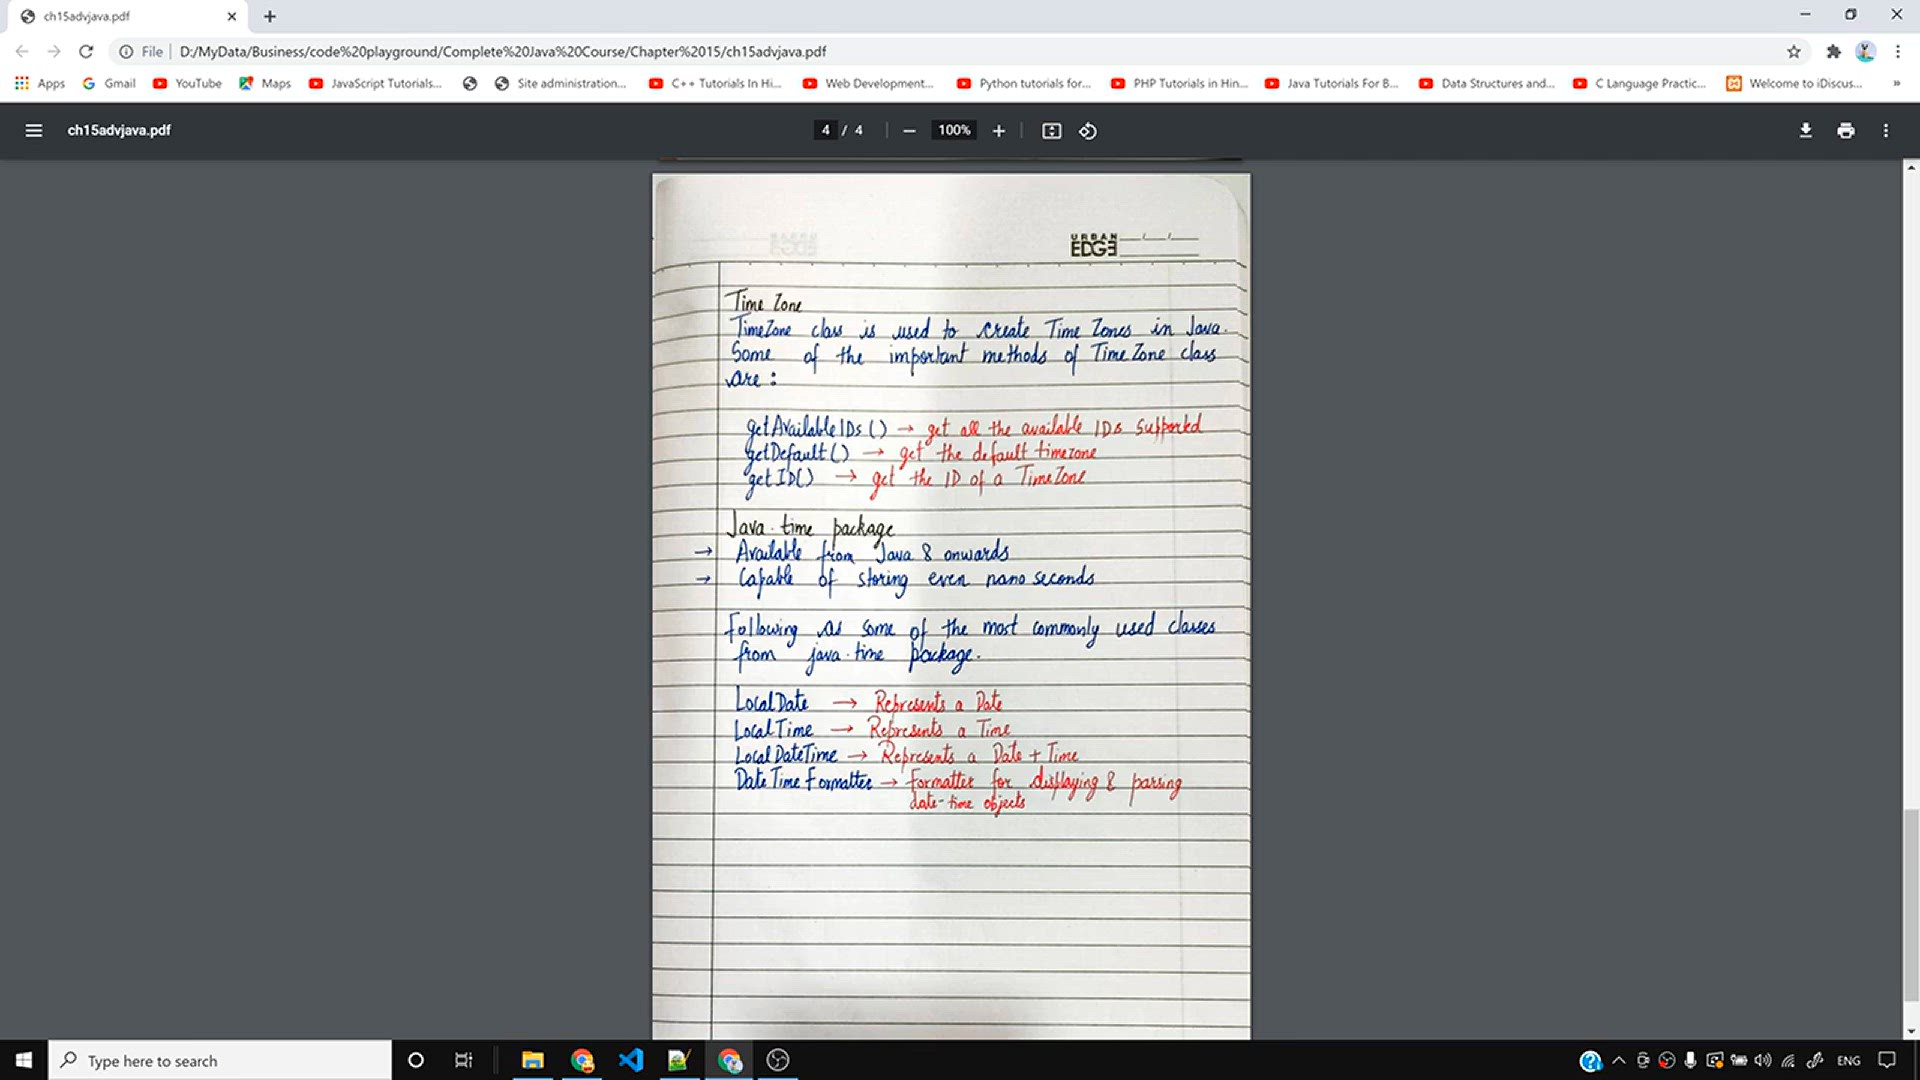 ch15advjava.pdf
File
D:/MyData/Business/code%20playground/Complete%20Java%20Course/Chapter%2015/ch15advjava.pdf
Apps
Gmail
YouTube
Maps
JavaScript Tutorials...
Site administration...
C++ Tutorials In Hi...
Web Development...
Python tutorials for...
PHP Tutorials in Hin...
Java Tutorials For B...
Data Structures and...
C Language Practic...
Welcome to iDiscus...
»
ch15advjava.pdf
4 / 4
100%
URBAN
EDGE
Time Zone
TimeZone class is used to create Time Zones in Java.
Some of the important methods of TimeZone class
are :
getAvailableIDs () → get all the available IDs Supported
getDefault () → get the default timezone
getID() → get the ID of a TimeZone
Java.time package
→ Available from Java 8 onwards
→ Capable of storing even nano seconds
Following as some of the most commonly used classes
from java.time package.
LocalDate → Represents a Date
LocalTime → Represents a Time
LocalDateTime → Represents a Date + Time
DateTimeFormatter → Formatter for displaying & parsing
date-time objects
Type here to search
ENG